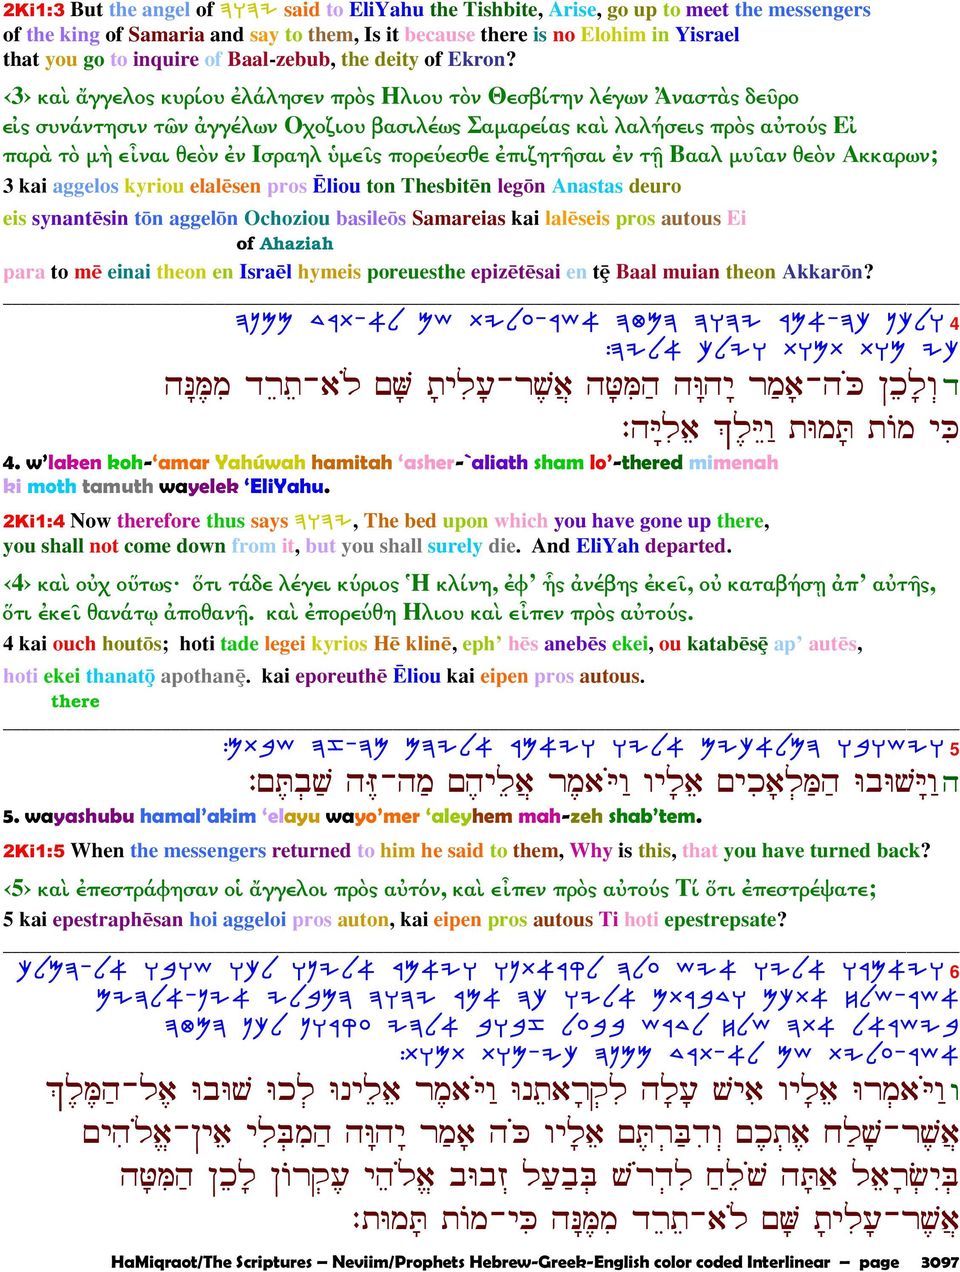 2Ki1:3 But the angel of 𐤉𐤄𐤅𐤄 said to EliYahu the Tishbite, Arise, go up to meet the messengers
of the king of Samaria and say to them, Is it because there is no Elohim in Yisrael
that you go to inquire of Baal-zebub, the deity of Ekron?
‹3› καὶ ἄγγελος κυρίου ἐλάλησεν πρὸς Ηλιου τὸν Θεσβίτην λέγων Ἀναστὰς δεῦρο
εἰς συνάντησιν τῶν ἀγγέλων Οχοζιου βασιλέως Σαμαρείας καὶ λαλήσεις πρὸς αὐτούς Εἰ
παρὰ τὸ μὴ εἶναι θεὸν ἐν Ισραηλ ὑμεῖς πορεύεσθε ἐπιζητῆσαι ἐν τῇ Βααλ μυῖαν θεὸν Ακκαρων;
3 kai aggelos kyriou elalēsen pros Ēliou ton Thesbitēn legōn Anastas deuro
eis synantēsin tōn aggelōn Ochoziou basileōs Samareias kai lalēseis pros autous Ei
of Ahaziah
para to mē einai theon en Israēl hymeis poreuesthe epizētēsai en tȩ̄ Baal muian theon Akkarōn?
𐤅𐤋𐤊𐤍 𐤊𐤄-𐤀𐤌𐤓 𐤉𐤄𐤅𐤄 𐤄𐤌𐤈𐤄 𐤀𐤔𐤓-𐤏𐤋𐤉𐤕 𐤔𐤌 𐤋𐤀-𐤕𐤓𐤃 𐤌𐤌𐤍𐤄 4
𐤊𐤉 𐤌𐤅𐤕 𐤕𐤌𐤅𐤕 𐤅𐤉𐤋𐤊 𐤀𐤋𐤉𐤄:
ד וְלָכֵן כֹּה־אָמַר יָהוּה הַמִּטָּה אֲשֶׁר־עָלִיתָ שָּׁם לֹא־תֵרֵד מִמֶּנָּה
כִּי מוֹת תָּמוּת וַיֵּלֶךְ אֵלִיָּה:
4. w’laken koh-‘amar Yahúwah hamitah ‘asher-`aliath sham lo’-thered mimenah
ki moth tamuth wayelek ‘EliYahu.
2Ki1:4 Now therefore thus says 𐤉𐤄𐤅𐤄, The bed upon which you have gone up there,
you shall not come down from it, but you shall surely die. And EliYah departed.
‹4› καὶ οὐχ οὕτως· ὅτι τάδε λέγει κύριος Ἡ κλίνη, ἐφ’ ἧς ἀνέβης ἐκεῖ, οὐ καταβήσῃ ἀπ’ αὐτῆς,
ὅτι ἐκεῖ θανάτῳ ἀποθανῇ. καὶ ἐπορεύθη Ηλιου καὶ εἶπεν πρὸς αὐτούς.
4 kai ouch houtōs; hoti tade legei kyrios Hē klinē, eph’ hēs anebēs ekei, ou katabēsȩ̄ ap’ autēs,
hoti ekei thanatō̧ apothanȩ̄. kai eporeuthē Ēliou kai eipen pros autous.
there
𐤅𐤉𐤔𐤅𐤁𐤅 𐤄𐤌𐤋𐤀𐤊𐤉𐤌 𐤀𐤋𐤉𐤅 𐤅𐤉𐤀𐤌𐤓 𐤀𐤋𐤉𐤄𐤌 𐤌𐤄-𐤆𐤄 𐤔𐤁𐤕𐤌: 5
ה וַיָּשׁוּבוּ הַמַּלְאָכִים אֵלָיו וַיֹּאמֶר אֲלֵיהֶם מַה־זֶּה שַׁבְתֶּם:
5. wayashubu hamal’akim ‘elayu wayo’mer ‘aleyhem mah-zeh shab’tem.
2Ki1:5 When the messengers returned to him he said to them, Why is this, that you have turned back?
‹5› καὶ ἐπεστράφησαν οἱ ἄγγελοι πρὸς αὐτόν, καὶ εἶπεν πρὸς αὐτούς Τί ὅτι ἐπεστρέψατε;
5 kai epestraphēsan hoi aggeloi pros auton, kai eipen pros autous Ti hoti epestrepsate?
𐤅𐤉𐤀𐤌𐤓𐤅 𐤀𐤋𐤉𐤅 𐤀𐤉𐤔 𐤏𐤋𐤄 𐤋𐤒𐤓𐤀𐤕𐤍𐤅 𐤅𐤉𐤀𐤌𐤓 𐤀𐤋𐤉𐤍𐤅 𐤋𐤊𐤅 𐤔𐤅𐤁𐤅 𐤀𐤋-𐤄𐤌𐤋𐤊 6
𐤀𐤔𐤓-𐤔𐤋𐤇 𐤀𐤕𐤊𐤌 𐤅𐤃𐤁𐤓𐤕𐤌 𐤀𐤋𐤉𐤅 𐤊𐤄 𐤀𐤌𐤓 𐤉𐤄𐤅𐤄 𐤄𐤌𐤁𐤋𐤉 𐤀𐤉𐤍-𐤀𐤋𐤄𐤉𐤌
𐤁𐤉𐤔𐤓𐤀𐤋 𐤀𐤕𐤄 𐤔𐤋𐤇 𐤋𐤃𐤓𐤔 𐤁𐤁𐤏𐤋 𐤆𐤁𐤅𐤁 𐤀𐤋𐤄𐤉 𐤏𐤒𐤓𐤅𐤍 𐤋𐤊𐤍 𐤄𐤌𐤈𐤄
𐤀𐤔𐤓-𐤏𐤋𐤉𐤕 𐤔𐤌 𐤋𐤀-𐤕𐤓𐤃 𐤌𐤌𐤍𐤄 𐤊𐤉-𐤌𐤅𐤕 𐤕𐤌𐤅𐤕:
ו וַיֹּאמְרוּ אֵלָיו אִישׁ עָלָה לִקְרָאתֵנוּ וַיֹּאמֶר אֵלֵינוּ לְכוּ שׁוּבוּ אֶל־הַמֶּלֶךְ
אֲשֶׁר־שָׁלַח אֶתְכֶם וְדִבַּרְתֶּם אֵלָיו כֹּה אָמַר יָהוּה הַמִבְּלִי אֵין־אֱלֹהִים
בְּיִשְׂרָאֵל אַתָּה שֹׁלֵחַ לִדְרֹשׁ בְּבַעַל זְבוּב אֱלֹהֵי עֶקְרוֹן לָכֵן הַמִּטָּה
אֲשֶׁר־עָלִיתָ שָּׁם לֹא־תֵרֵד מִמֶּנָּה כִּי־מוֹת תָּמוּת:
HaMiqraot/The Scriptures – Neviim/Prophets Hebrew-Greek-English color coded Interlinear – page 3097